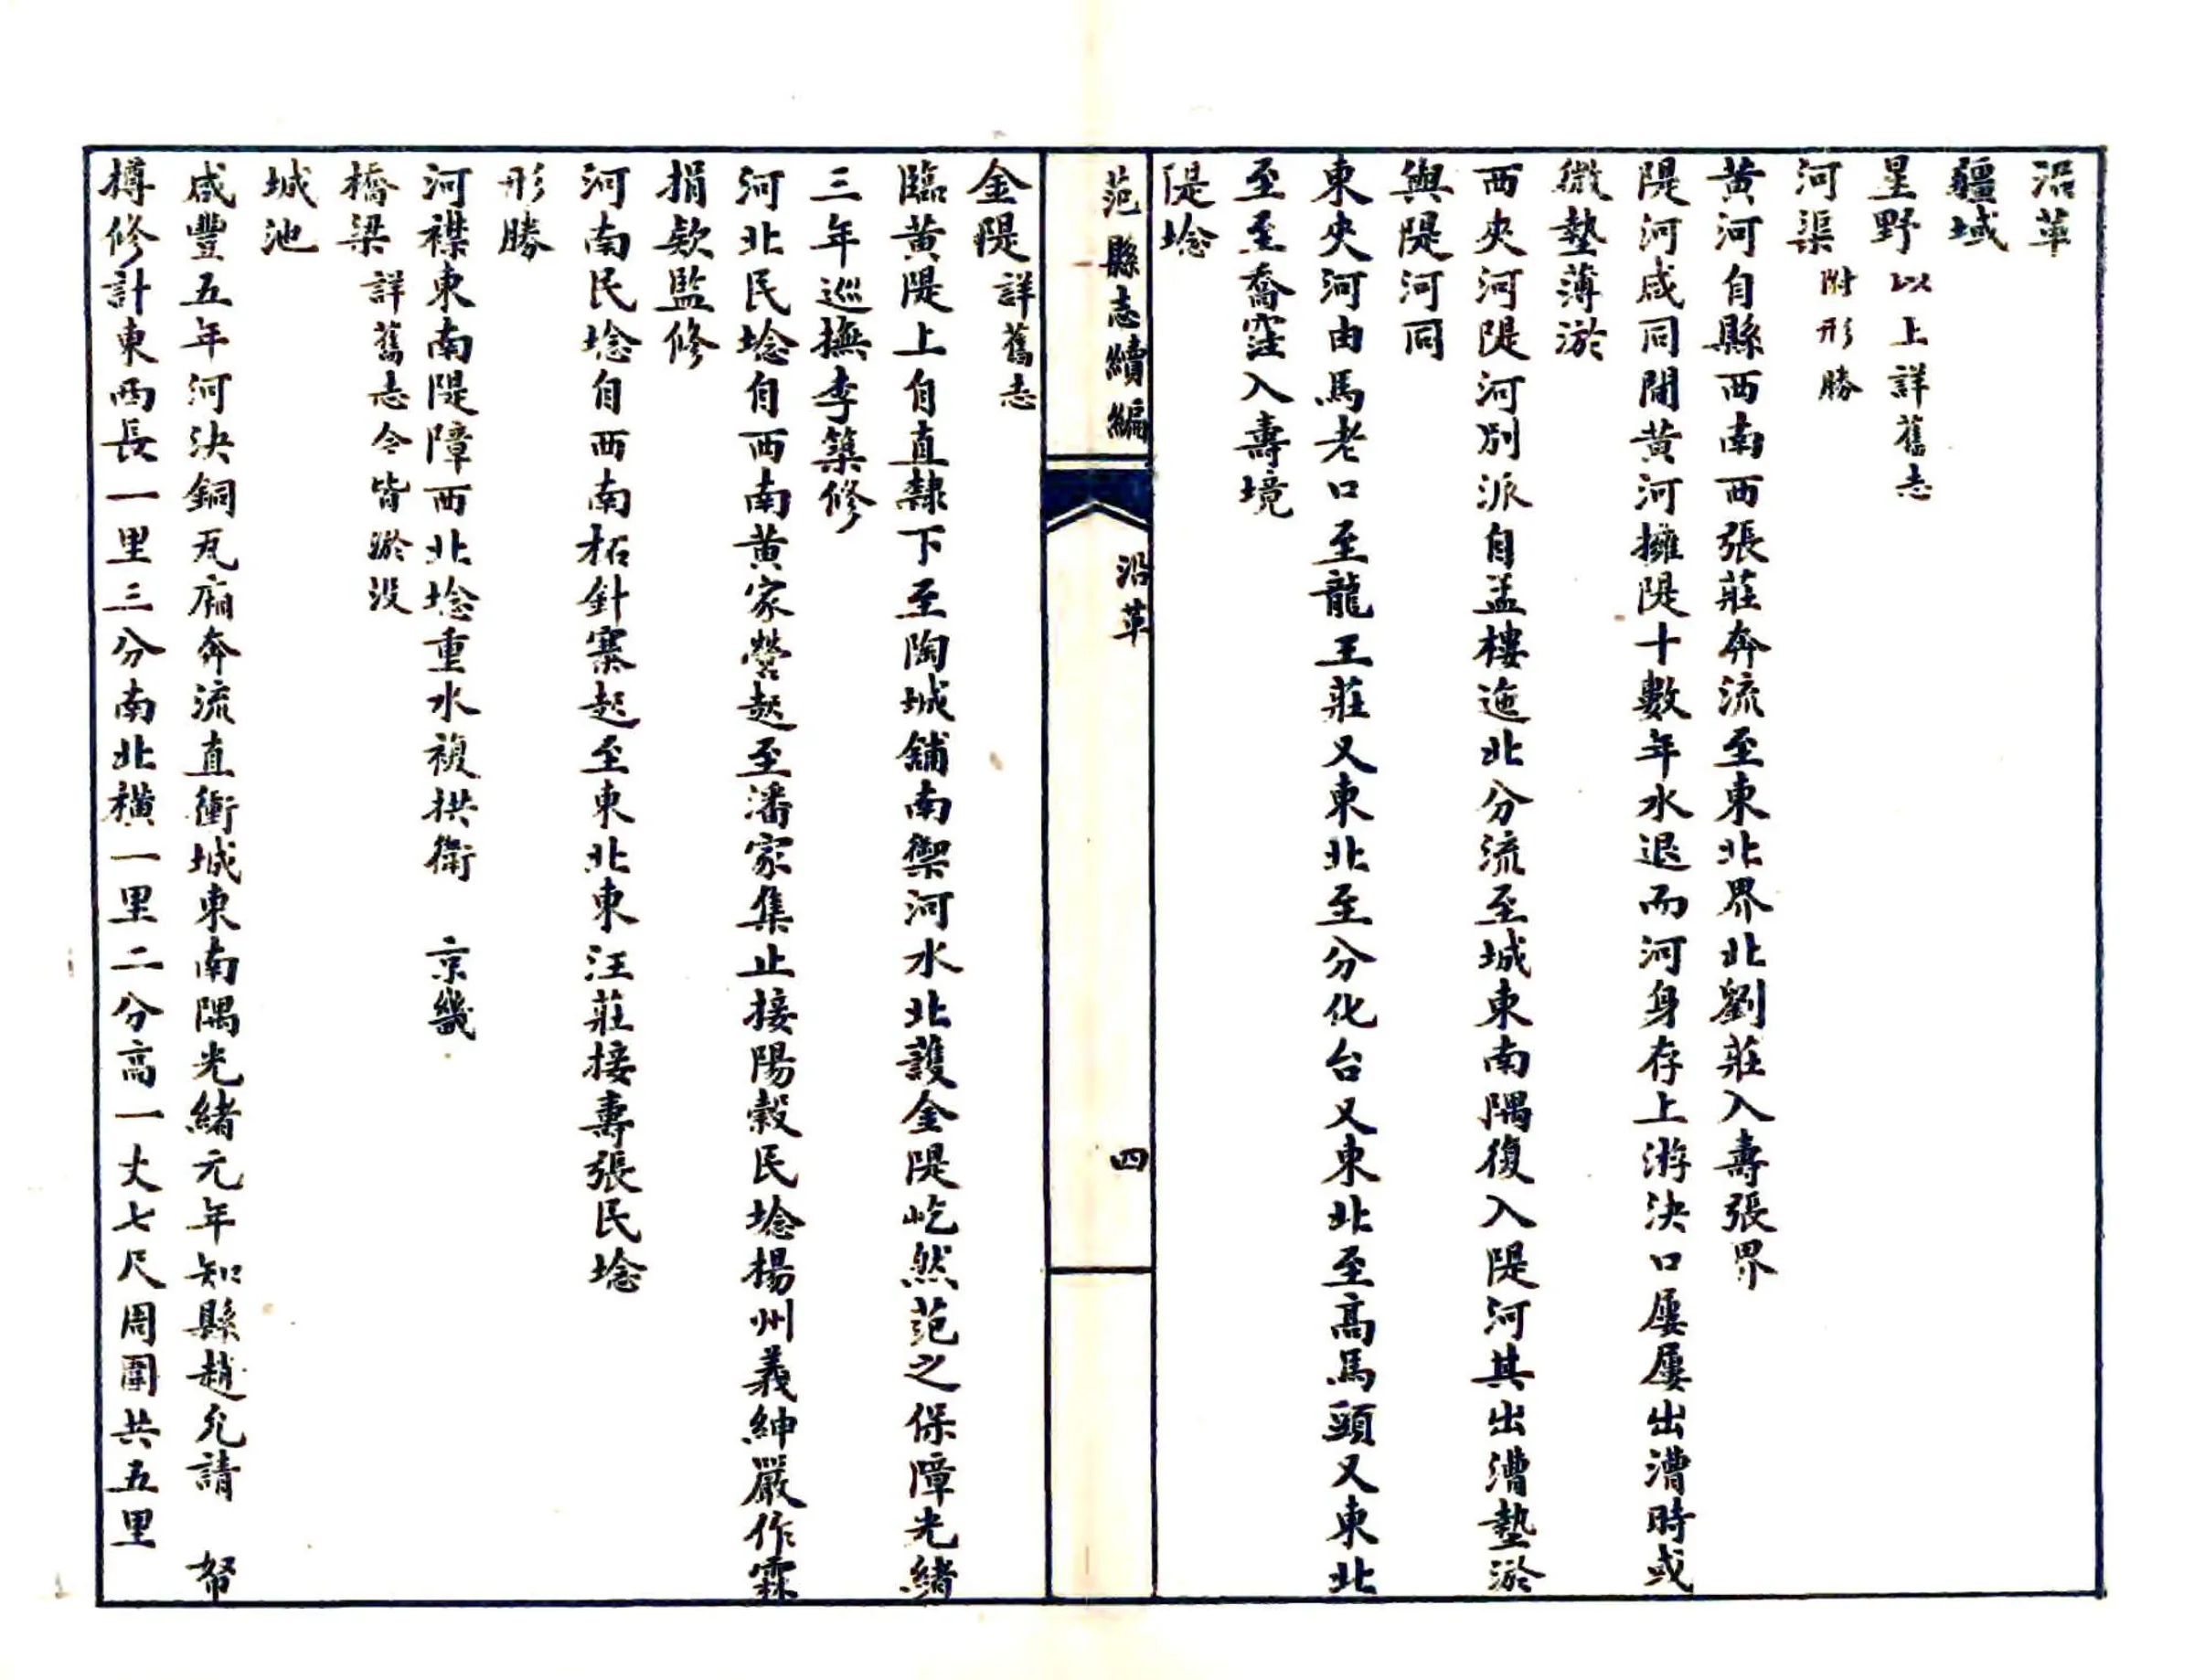 沿革
疆域
星野以上詳舊志
河渠附形勝
黄河自縣西南西張莊奔流至東北界北劉莊入壽張界
隄河咸同間黄河擁隄十數年水退而河身存上游決口屢屢出漕時或
微墊薄淤
西夾河隄河别派自孟樓迤北分流至城東南隅復入隄河其出漕墊淤
與隄河同
東夾河由馬老口至龍王莊又東北至分化台又東北至高馬頭又東北
至至喬窪入壽境
隄埝
范縣志續編
沿革
四
金隄詳舊志
臨黄隄上自直隸下至陶城舖南禦河水北護金隄屹然范之保障光緒
三年巡撫李築修
河北民埝自西南黄家營起至潘家集止接陽榖民埝楊州義紳嚴作霖
捐欵監修
河南民埝自西南柘針寨起至東北東汪莊接壽張民埝
形勝
河襟東南隄障西北埝重水複拱衛　京畿
橋梁詳舊志今皆淤没
城池
咸豐五年河決銅瓦廂奔流直衝城東南隅光緒元年知縣趙允請　帑
樽修計東西長一里三分南北横一里二分高一丈七尺周圍共五里